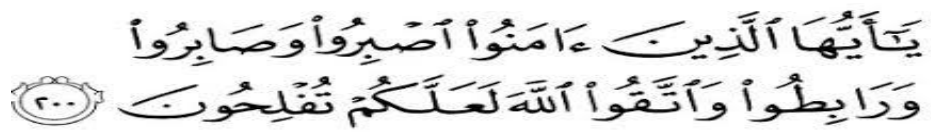 يَـٰٓأَيُّهَا ٱلَّذِينَ ءَامَنُوا۟ ٱصْبِرُوا۟ وَصَابِرُوا۟
وَرَابِطُوا۟ وَٱتَّقُوا۟ ٱللَّهَ لَعَلَّكُمْ تُفْلِحُونَ ٢٠٠